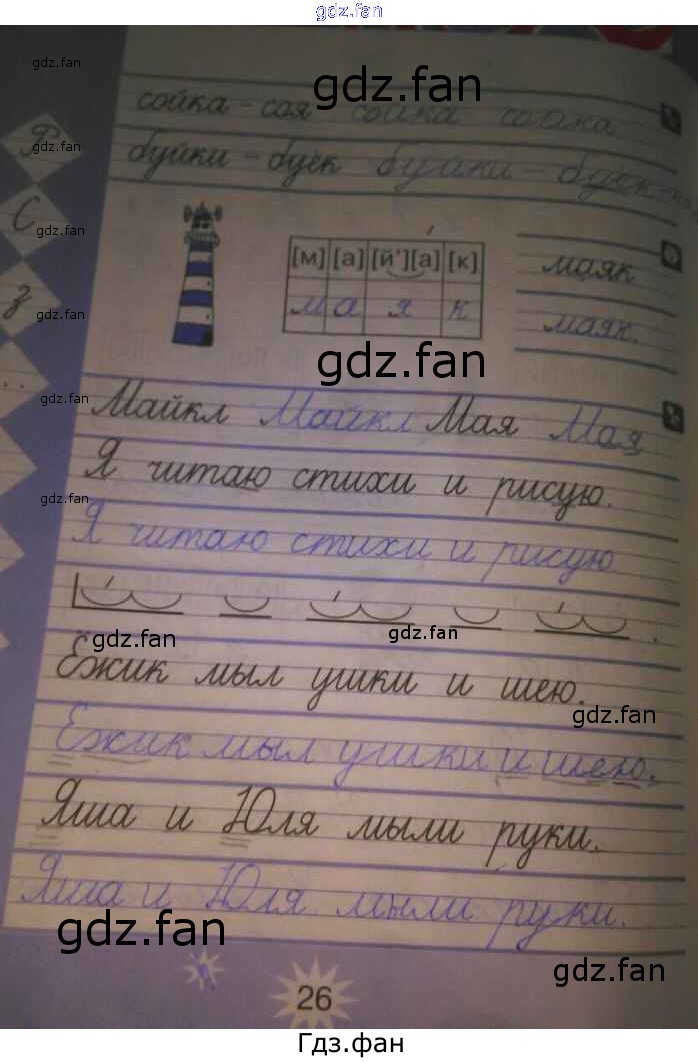 gdz.fan
gdz.fan
gdz.fan
сойка - соя сойка
буйки - буёк
gdz.fan
gdz.fan
[м] [а] [й'] [а] [к]
м а я к
маяк
маяк.
gdz.fan
gdz.fan
gdz.fan
Майкл Майкл Мая Мая
Я читаю стихи и рисую.
gdz.fan
Я читаю стихи и рисую
gdz.fan
gdz.fan
Ёжик мыл ушки и шею.
gdz.fan
Ёжик мыл ушки и шею.
Яша и Юля мыли руки.
Яша и Юля мыли руки.
gdz.fan
gdz.fan
26
Гдз.фан